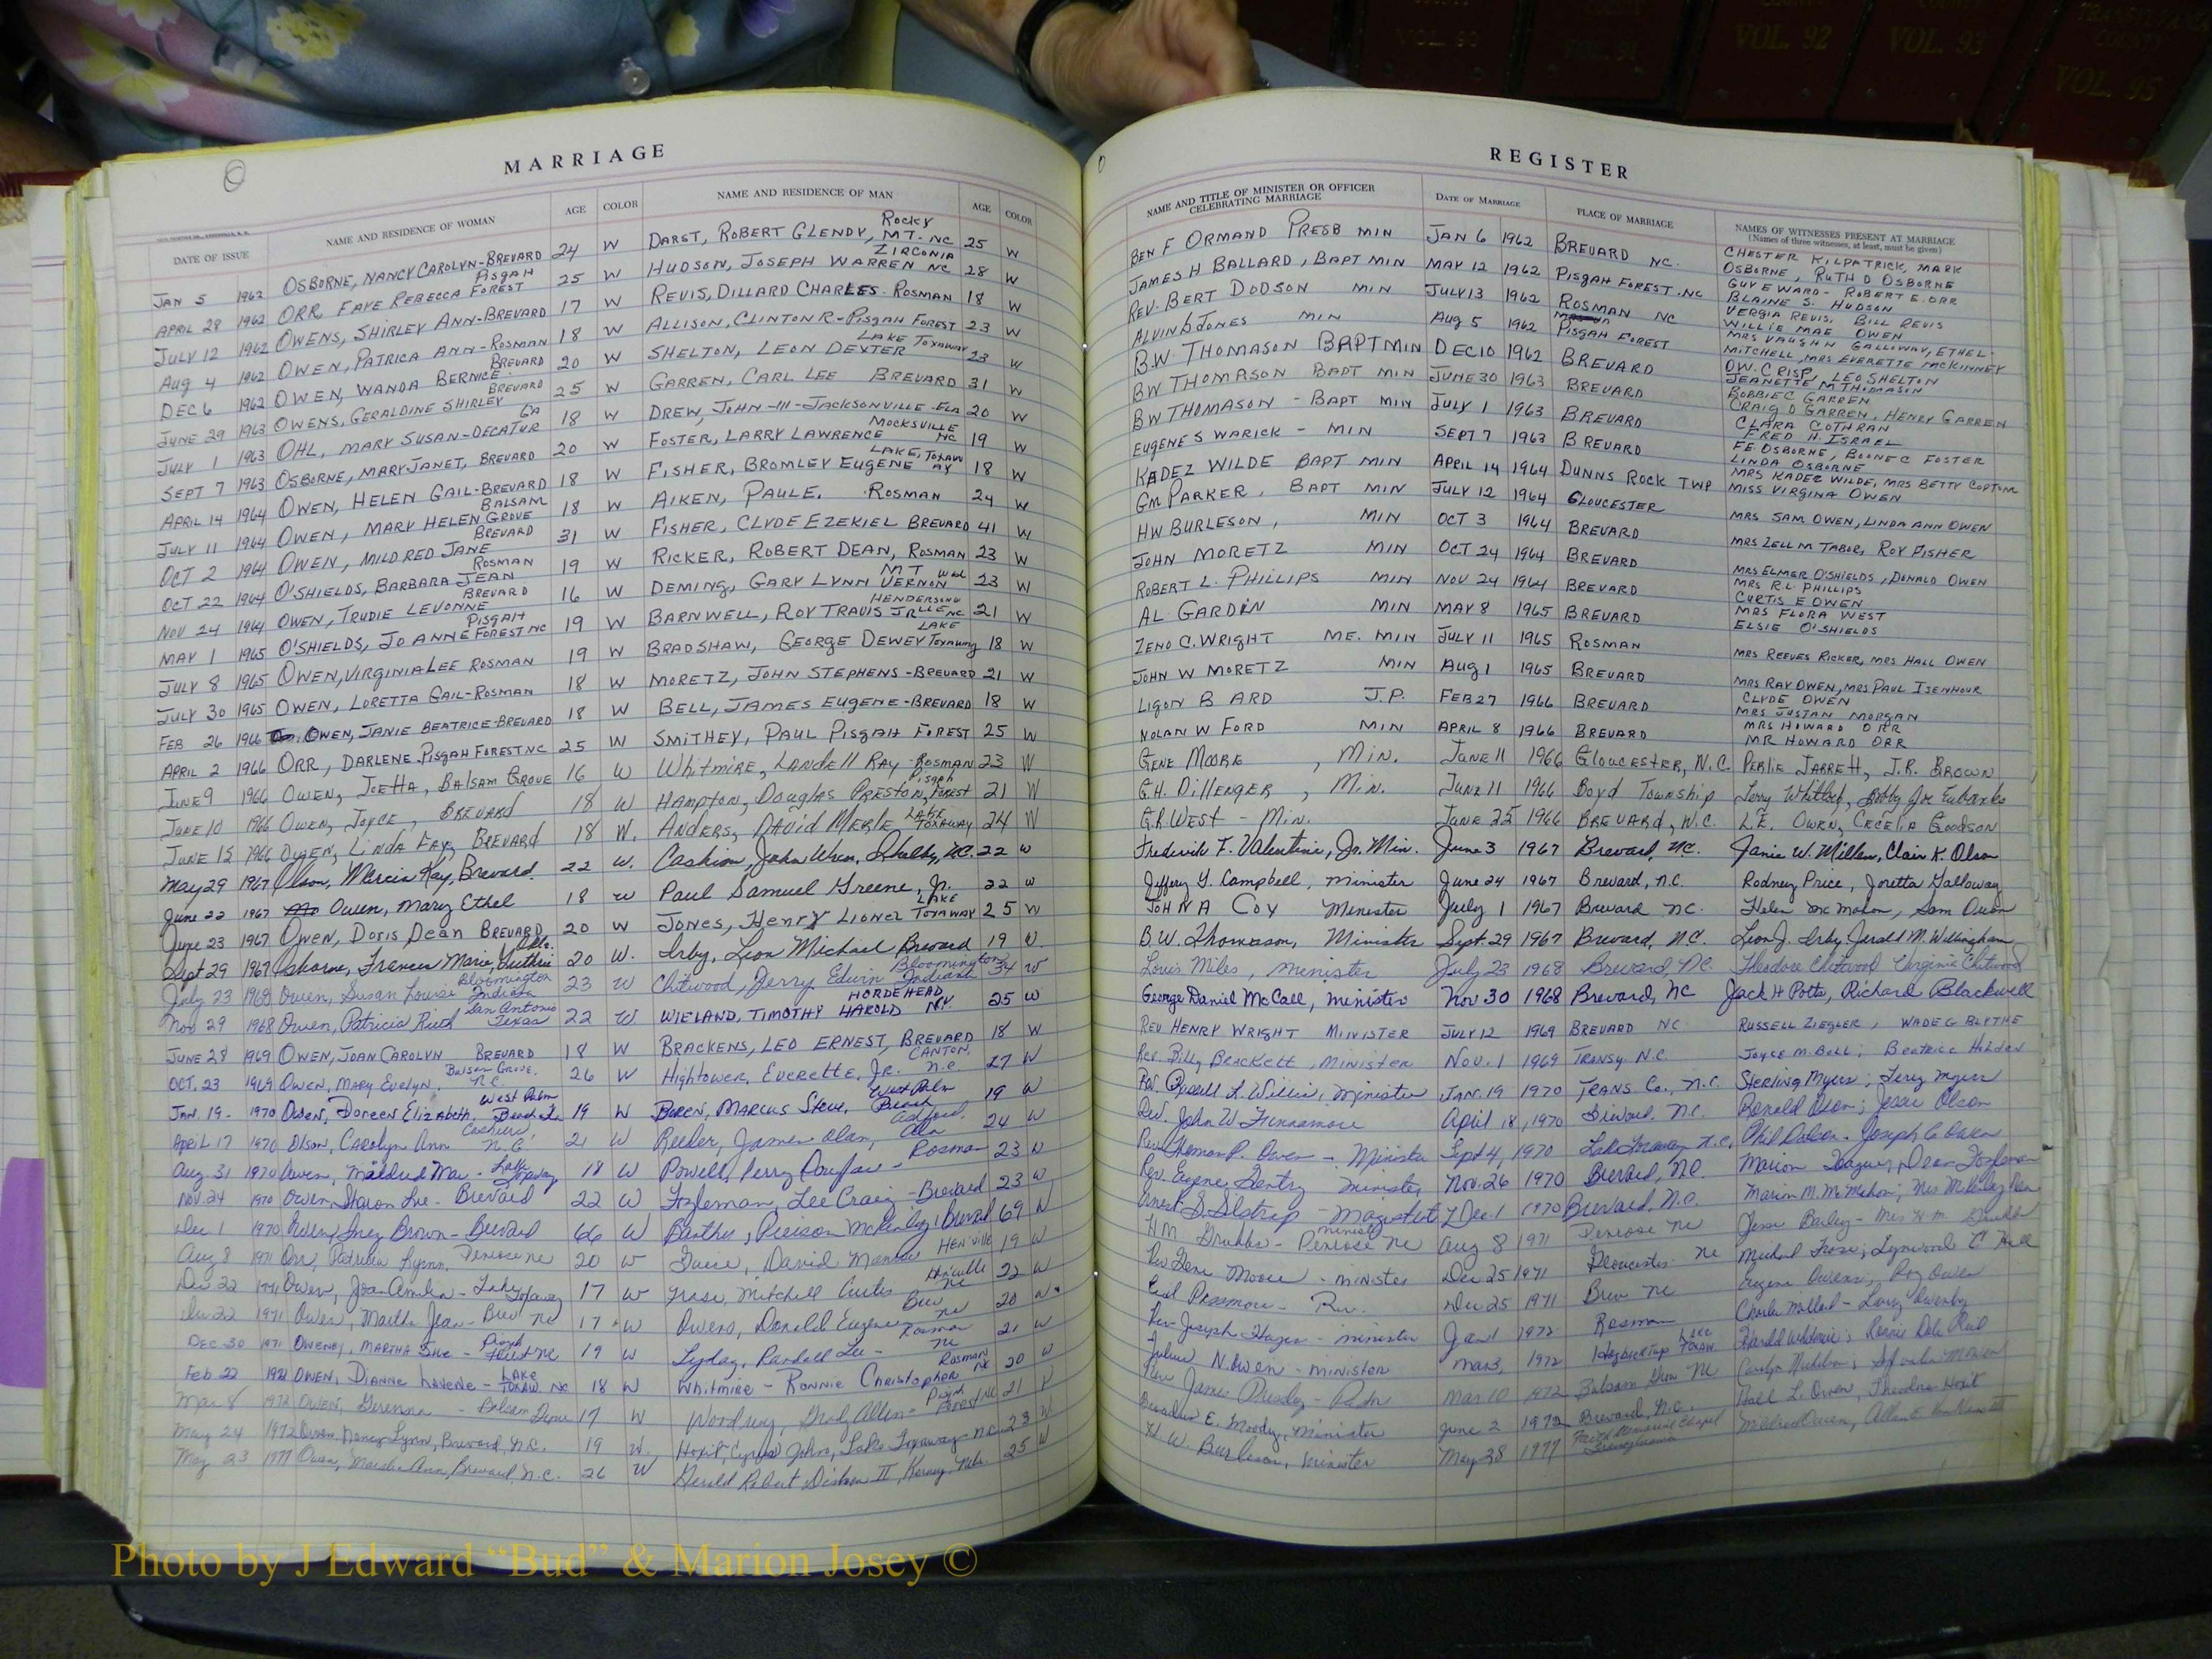 COUNTY VOL. 90
VOL. 91
COUNTY VOL. 92
COUNTY VOL. 93
TRANSYLVANIA COUNTY VOL. 95
MARRIAGE
DATE OF ISSUE NAME AND RESIDENCE OF WOMAN AGE COLOR NAME AND RESIDENCE OF MAN AGE COLOR
JAN 5 1962 OSBORNE, NANCY CAROLYN-BREVARD 24 W DARST, ROBERT GLENDY, ROCKY MT. NC 25 W
APRIL 28 1962 ORR FAYE REBECCA PISGAH FOREST 25 W HUDSON, JOSEPH WARREN ZIRCONIA NC 28 W
JULY 12 1962 OWENS, SHIRLEY ANN-BREVARD 17 W REVIS, DILLARD CHARLES-ROSMAN 18 W
AUG 4 1962 OWEN, PATRICA ANN-ROSMAN 18 W ALLISON, CLINTON R-PISGAH FOREST 23 W
DEC 6 1962 OWEN, WANDA BERNICE BREVARD 20 W SHELTON, LEON DEXTER LAKE TOXAWAY 23 W
JUNE 29 1963 OWENS, GERALDINE SHIRLEY BREVARD 25 W GARREN, CARL LEE BREVARD 31 W
JULY 1 1963 OHL, MARY SUSAN-DECATUR GA 18 W DREW, JOHN-III-JACKSONVILLE-FLA 20 W
SEPT 7 1963 OSBORNE, MARY JANET, BREVARD 20 W FOSTER, LARRY LAWRENCE MOCKSVILLE NC 19 W
APRIL 14 1964 OWEN, HELEN GAIL-BREVARD 18 W FISHER, BROMLEY EUGENE LAKE, TOXAWAY 18 W
JULY 11 1964 OWEN, MARY HELEN BALSAM GROVE 18 W AIKEN, PAUL E. ROSMAN 24 W
OCT 2 1964 OWEN, MILDRED JANE BREVARD 31 W FISHER, CLYDE EZEKIEL BREVARD 41 W
OCT 22 1964 O'SHIELDS, BARBARA JEAN ROSMAN 19 W RICKER, ROBERT DEAN, ROSMAN 23 W
NOV 24 1964 OWEN, TRUDIE LEVONNE BREVARD 16 W DEMING, GARY LYNN MT VERNON WAS 23 W
MAY 1 1965 O'SHIELDS, JO ANNE PISGAH FOREST NC 19 W BARNWELL, ROY TRAVIS JR HENDERSONVILLE NC 21 W
JULY 8 1965 OWEN, VIRGINIA LEE ROSMAN 19 W BRADSHAW, GEORGE DEWEY LAKE TOXAWAY 18 W
JULY 30 1965 OWEN, LORETTA GAIL-ROSMAN 18 W MORETZ, JOHN STEPHENS-BREVARD 21 W
FEB 26 1966 OWEN, JANIE BEATRICE-BREVARD 18 W BELL, JAMES EUGENE-BREVARD 18 W
APRIL 2 1966 ORR, DARLENE PISGAH FOREST NC 25 W SMITHEY, PAUL PISGAH FOREST 25 W
JUNE 9 1966 OWEN, JOETTA, BALSAM GROVE 16 W WHITMIRE, LANDELL RAY-ROSMAN 23 W
JUNE 10 1966 OWEN, JOYCE, BREVARD 18 W HAMPTON, DOUGLAS PRESTON, PISGAH FOREST 21 W
JUNE 15 1966 OWEN, LINDA FAY, BREVARD 18 W. ANDERS, DAVID MERLE LAKE TOXAWAY 24 W
May 29 1967 Olson, Marcia Kay, Brevard. 22 W. Cashion, John Wren, Shelby, N.C. 22 W
June 22 1967 Owen, Mary Ethel 18 W Paul Samuel Greene, Jr. 22 W
June 23 1967 OWEN, DORIS DEAN BREVARD 20 W JONES, HENRY LIONEL LAKE TOXAWAY 25 W
Sept 29 1967 Osborne, Frances Marie, Guthrie Okla. 20 W. Irby, Leon Michael Brevard 19 W.
July 23 1968 Owen, Susan Louise Bloomington Indiana 23 W Chitwood, Jerry Edwin Bloomington Indiana 34 W
Nov. 29 1968 Owen, Patricia Ruth San Antonio Texas 22 W WIELAND, TIMOTHY HAROLD HORDEHEAD NY 25 W
JUNE 28 1969 OWEN, JOAN CAROLYN BREVARD 18 W BRACKENS, LEO ERNEST, BREVARD 18 W
OCT. 23 1969 OWEN, MARY EVELYN, Balsam Grove, N.C. 26 W HIGHTOWER, EVERETTE, JR. CANTON, N.C 27 W
JAN. 19- 1970 OWEN, DOREEN ELIZABETH, West Palm Beach Fla 19 W BUREN, MARCUS STEVE, West Palm Beach 19 W
April 17 1970 Olson, Carolyn Ann Cashiers, N.C 21 W Reeder, James Alan, Ala 24 W
Aug 31 1970 Owen, Mildred Mae - Lake Toxaway 18 W Powell, Perry Douglas - Rosman 23 W
Nov. 24 1970 Owen, Sharon Sue - Brevard 22 W Fogleman, Lee Craig - Brevard 23 W
Dec 1 1970 Inez Brown - Brevard 66 W 69 W
Aug 8 1971 Orr, Patricia Lynn, Penrose NC 20 W David HEN'VILLE 19 W
Dec 22 1971 Owen, Joan - Lake Toxaway 17 W Mitchell Curtis Hen'ville NC 22 W
Dec 22 1971 Owen, Martha Jean - Brev NC 17 W Owens, Donald Eugene Brev NC 20 W
DEC 30 1971 OWENBY, MARTHA SUE - Pisgah Forest NC 19 W Lyday, Randall Lee - Rosman NC 21 W
Feb 22 OWEN, DIANNE - LAKE TOXAW. NC 18 W Whitmire - Ronnie Christopher ROSMAN NC 20 W
Mar 8 1972 OWEN, - Balsam Grove 17 W Allen - Pisgah Forest NC 21
May 24 1972 Owen, Nancy Lynn, Brevard, N.C. 19 W. John, Lake Toxaway N.C. 23 W
May 23 1977 Owen, Ann, Brevard, N.C. 26 W Gerald Robert II, 25 W
REGISTER
NAME AND TITLE OF MINISTER OR OFFICER CELEBRATING MARRIAGE DATE OF MARRIAGE PLACE OF MARRIAGE NAMES OF WITNESSES PRESENT AT MARRIAGE
(Names of three witnesses, at least, must be given)
BEN F ORMAND PRESB MIN JAN 6 1962 BREVARD NC. CHESTER KILPATRICK, MARK OSBORNE, RUTH D OSBORNE
JAMES H BALLARD, BAPT MIN MAY 12 1962 PISGAH FOREST-NC GUY E WARD-ROBERT E. ORR BLAINE S. HUDSON
REV. BERT DODSON MIN JULY 13 1962 ROSMAN NC VERGIA REVIS, BILL REVIS WILLIE MAE OWEN
ALVIN S JONES MIN AUG 5 1962 PISGAH FOREST MRS VAUGHN GALLOWAY, ETHEL MITCHELL, MRS EVERETTE MCKINNEY
B.W. THOMASON BAPT MIN DEC 10 1962 BREVARD O.W. CRISP, LEO SHELTON JEANETTE M THOMASON
BW THOMASON BAPT MIN JUNE 30 1963 BREVARD BOBBIE C GARREN CRAIG D GARREN, HENRY GARREN
BW THOMASON - BAPT MIN JULY 1 1963 BREVARD CLARA COTHRAN FRED H. ISRAEL
EUGENE S WARICK - MIN SEPT 7 1963 BREVARD F.E. OSBORNE, BOONE C FOSTER LINDA OSBORNE
KADEZ WILDE BAPT MIN APRIL 14 1964 DUNNS ROCK TWP MRS KADEZ WILDE, MRS BETTY MISS VIRGINA OWEN
GM PARKER, BAPT MIN JULY 12 1964 GLOUCESTER MRS SAM OWEN, LINDA ANN OWEN
HW BURLESON, MIN OCT 3 1964 BREVARD MRS ZELL M TABOR, ROY FISHER
JOHN MORETZ MIN OCT 24 1964 BREVARD MRS ELMER O'SHIELDS, DONALD OWEN
ROBERT L. PHILLIPS MIN NOV 24 1964 BREVARD MRS R.L. PHILLIPS CURTIS E OWEN
AL GARDIN MIN MAY 8 1965 BREVARD MRS FLORA WEST ELSIE O'SHIELDS
ZENO C. WRIGHT ME. MIN JULY 11 1965 ROSMAN MRS REEVES RICKER, MRS HALL OWEN
JOHN W MORETZ MIN AUG 1 1965 BREVARD MRS RAY OWEN, MRS PAUL ISENHOUR
LIGON B ARD J.P. FEB 27 1966 BREVARD CLYDE OWEN MRS JUSTAN MORGAN
NOLAN W FORD MIN APRIL 8 1966 BREVARD MRS HOWARD ORR MR HOWARD ORR
GENE MOORE, MIN. JUNE 11 1966 GLOUCESTER, N.C. PERLIE JARRETT, J.R. BROWN
G.H. DILLENGER, MIN. JUNE 11 1966 Boyd Township Bobby Joe Eubanks
G.R. WEST - MIN. JUNE 25 1966 BREVARD, N.C. L.E. OWEN, CECELIA GOODSON
Frederick T. Valentine, Jr. Min. June 3 1967 Brevard, NC. Janie W. Millen, Clair K. Olson
Jeffery Y. Campbell, Minister June 24 1967 Brevard, N.C. Rodney Price, Joretta Galloway
JOHN A COX Minister July 1 1967 Brevard NC. Helen McMahon, Sam Owen
B.W. Thomason, Minister Sept. 29 1967 Brevard, N.C. Leon J. Irby, Jerald M. Willingham
Louis Miles, minister July 23 1968 Brevard, N.C. Theodore Chitwood Virginia Chitwood
George Daniel McCall, minister Nov 30 1968 Brevard, NC Jack H Potts, Richard Blackwell
REV HENRY WRIGHT MINISTER JULY 12 1969 BREVARD NC RUSSELL ZIEGLER, WADE G BLYTHE
Rev. Billy Brackett, Minister Nov. 1 1969 TRANSY. N.C. Joyce M. Bell; Beatrice Holden
Rev. Russell L. Willis, Minister JAN. 19 1970 TRANS Co., N.C. Sterling Myers; Myers
Rev. John W. April 18, 1970 Brevard, N.C. Ronald Olson; Jessie Olson
Rev. Thomas P. Owen - Minister Sept 4, 1970 Lake Toxaway N.C. Joseph C Owen
Rev. Eugene Gentry Minister Nov. 26 1970 Brevard, N.C. Marion Dean Fogleman
Ernest S. Gilstrap - Magistrate Dec. 1 1970 Brevard, N.C. Marion M. McMahon; Mrs
H M Grubbs - Penrose NC minister Aug 8 1971 Penrose NC Jesse Bailey - Mrs H.M. Grubbs
Rev Gene Moore - minister Dec 25 1971 Gloucester NC
Cecil Passmore - Rev. Dec 25 1971 Brev NC Eugene Owens, Roy Owen
Rev Joseph - minister Jan 1 1972 Rosman Charles - Owenby
Julius N. Owen - minister Mar 3, 1972 Lake Toxaw
Rev James Mar 10 1972 Balsam Grove NC
E. Moody, Minister June 2 1972 Brevard, N.C. L. Owen,
H. W. Burleson, Minister May 28 1977 Memorial Chapel Mildred Owen,
Photo by J Edward “Bud” & Marion Josey ©